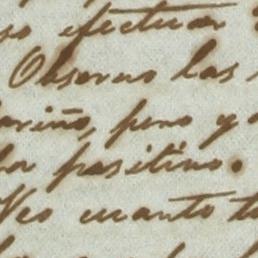 so efectuar
Observo las
cariño, pero y
por positivo.
Veo cuanto t